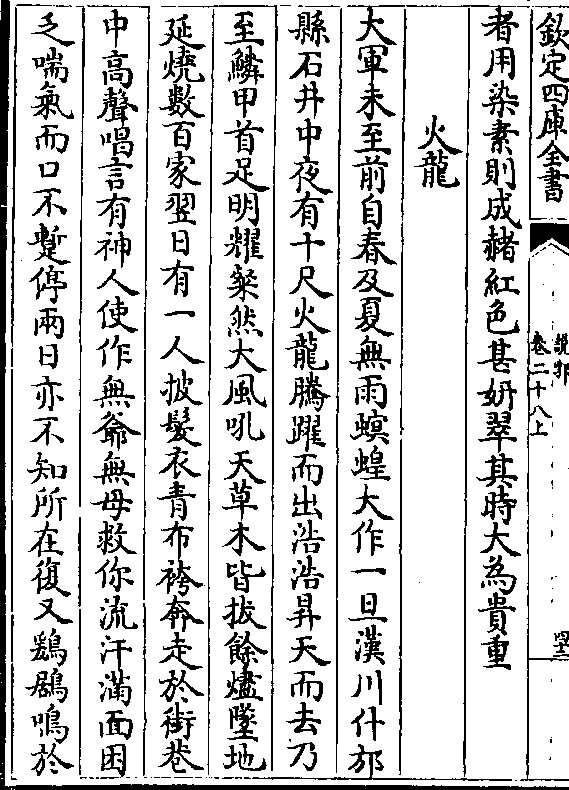 欽定四庫全書
說郛
卷二十八上
者用染素則成赭紅色甚妍翠其時大為貴重
火龍
大軍未至前自春及夏無雨螟蝗大作一旦漢川什邡
縣石井中夜有十尺火龍騰躍而出浩浩昇天而去乃
至鱗甲首足明耀粲然大風吼天草木皆拔餘燼墜地
延燒數百家翌日有一人披髮衣青布袴奔走於街巷
中高聲唱言有神人使作無爺無母救你流汗滿面困
乏喘氣而口不蹔停兩日亦不知所在復又鷄鶋鳴於